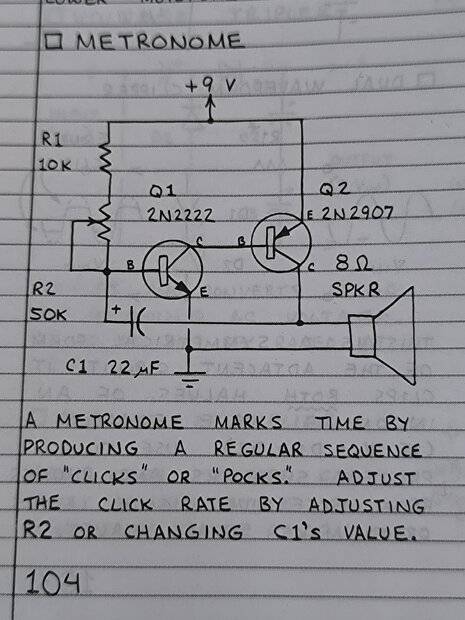 □ METRONOME
+9 V
R1
10K
Q1
2N2222
Q2
2N2907
E
C
B
B
C
E
8Ω
SPKR
R2
50K
+
C1 22 µF
A METRONOME MARKS TIME BY
PRODUCING A REGULAR SEQUENCE
OF "CLICKS" OR "POCKS." ADJUST
THE CLICK RATE BY ADJUSTING
R2 OR CHANGING C1'S VALUE.
104